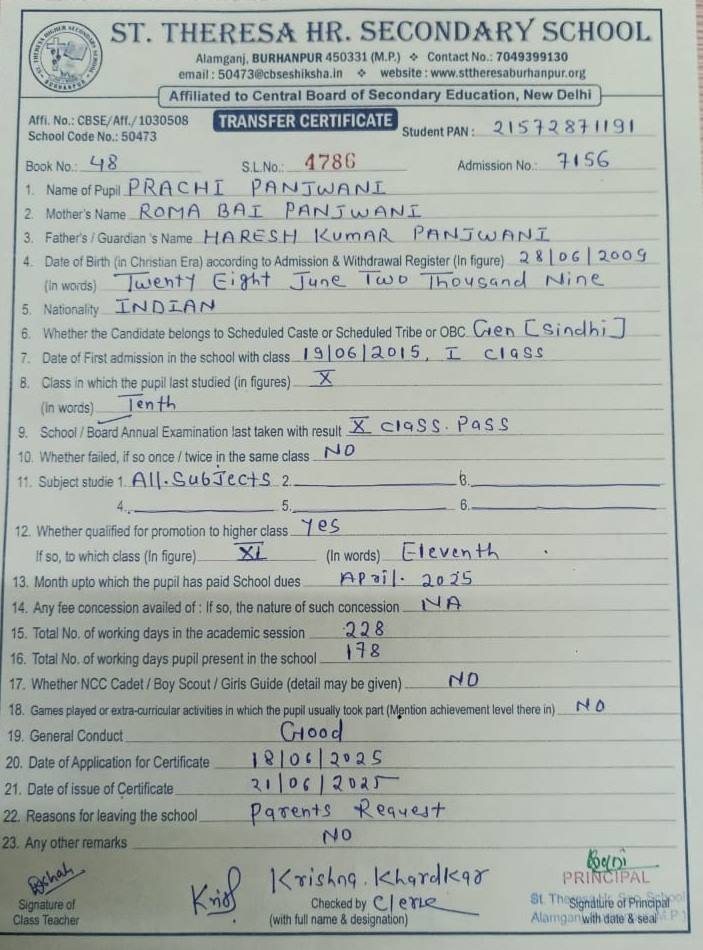 ST. THERESA HIGHER SECONDARY SCHOOL
BURHANPUR
ST. THERESA HR. SECONDARY SCHOOL
Alamganj, BURHANPUR 450331 (M.P.) ❖ Contact No.: 7049399130
email : 50473@cbseshiksha.in ❖ website : www.sttheresaburhanpur.org
Affiliated to Central Board of Secondary Education, New Delhi
Affi. No.: CBSE/Aff./1030508 TRANSFER CERTIFICATE Student PAN : 21572871191
School Code No.: 50473
Book No.: 48 S.L.No.: 4786 Admission No.: 7156
1. Name of Pupil PRACHI PANJWANI
2. Mother's Name ROMA BAI PANJWANI
3. Father's / Guardian 's Name HARESH KUMAR PANJWANI
4. Date of Birth (in Christian Era) according to Admission & Withdrawal Register (In figure) 28/06/2009
(in words) Twenty Eight June Two Thousand Nine
5. Nationality INDIAN
6. Whether the Candidate belongs to Scheduled Caste or Scheduled Tribe or OBC Gen [Sindhi]
7. Date of First admission in the school with class 19/06/2015, I class
8. Class in which the pupil last studied (in figures) X
(In words) Tenth
9. School / Board Annual Examination last taken with result X class. Pass
10. Whether failed, if so once / twice in the same class NO
11. Subject studie 1. All. Subjects 2. 6.
4. 5. 6.
12. Whether qualified for promotion to higher class Yes
If so, to which class (In figure) XI (In words) Eleventh
13. Month upto which the pupil has paid School dues April. 2025
14. Any fee concession availed of : If so, the nature of such concession NA
15. Total No. of working days in the academic session 228
16. Total No. of working days pupil present in the school 178
17. Whether NCC Cadet / Boy Scout / Girls Guide (detail may be given) NO
18. Games played or extra-curricular activities in which the pupil usually took part (Mention achievement level there in) NO
19. General Conduct Good
20. Date of Application for Certificate 18/06/2025
21. Date of issue of Certificate 21/06/2025
22. Reasons for leaving the school Parents Request
23. Any other remarks NO
Krishna. Khardkar
PRINCIPAL
Signature of Checked by Clerk Signature of Principal
Class Teacher (with full name & designation) Alamganj with date & seal